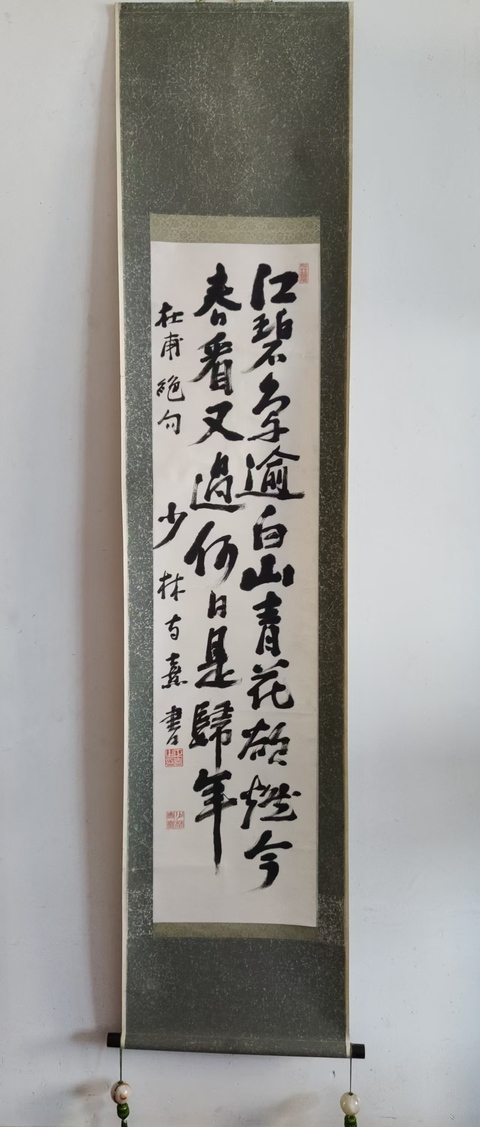 江碧鳥逾白山青花欲燃今
春看又過何日是歸年
杜甫絕句 少林寺熹書